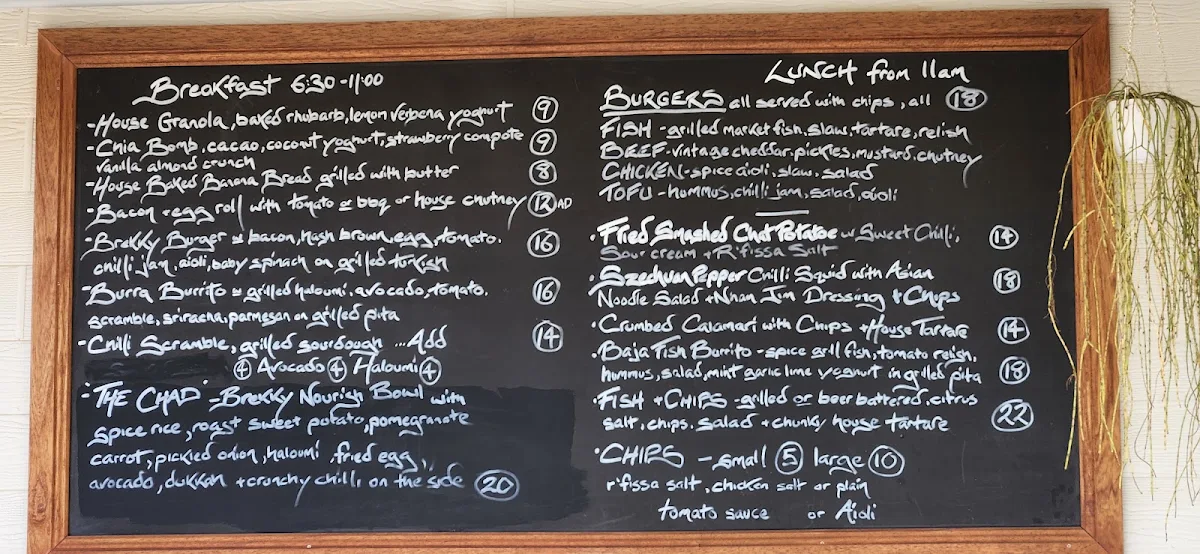 Breakfast 6:30-11:00
-House Granola, baked rhubarb, lemon verbena yoghurt 9
-Chia Bomb, cacao, coconut yoghurt, strawberry compote 9
vanilla almond crunch
-House Baked Banana Bread grilled with butter 8
-Bacon + egg roll with tomato or bbq or house chutney 12 AD
-Brekky Burger w bacon, hash brown, egg, tomato, 16
chilli jam, aioli, baby spinach on grilled turkish
-Burra Burrito w grilled haloumi, avocado, tomato, 16
scramble, sriracha, parmesan on grilled pita
-Chilli Scramble, grilled sourdough ...Add 14
4 Avocado 4 Haloumi 4
"THE CHAD" -Brekky Nourish Bowl with
spice rice, roast sweet potato, pomegranate
carrot, pickled onion, haloumi, fried egg,
avocado, dukkah + crunchy chilli on the side 20
LUNCH from 11am
BURGERS all served with chips, all 18
FISH - grilled market fish, slaw, tartare, relish
BEEF - vintage cheddar, pickles, mustard, chutney
CHICKEN - spice aioli, slaw, salad
TOFU - hummus, chilli jam, salad, aioli
·Fried Smashed Chat Potatoe w Sweet Chilli, 14
Sour cream + R'fissa Salt
·Szechuan Pepper Chilli Squid with Asian 18
Noodle Salad + Nhan Jim Dressing + Chips
·Crumbed Calamari with Chips + House Tartare 14
·Baja Fish Burrito - spice grill fish, tomato relish,
hummus, salad, mint garlic lime yoghurt in grilled pita 18
·FISH + CHIPS - grilled or beer battered, citrus
salt, chips, salad + chunky house tartare 22
·CHIPS - small 5 large 10
r'fissa salt, chicken salt or plain
tomato sauce or Aioli